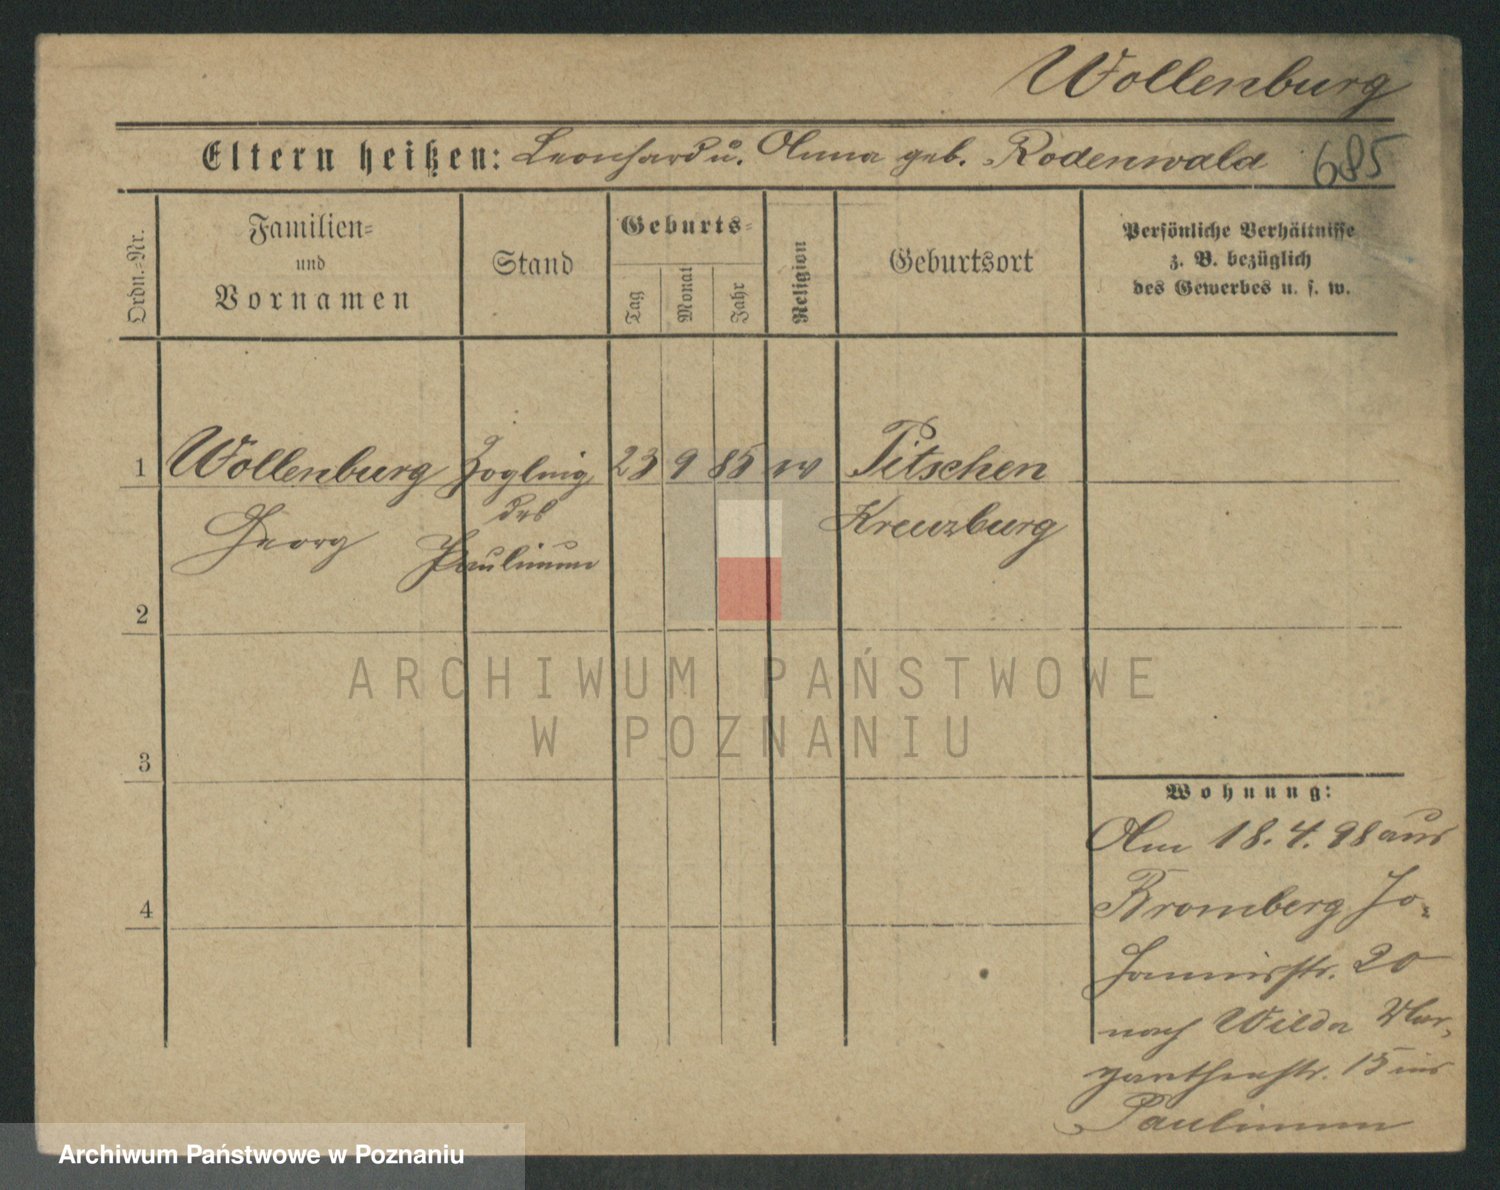 Wollenburg
Eltern heißen: Leonhard u. Anna geb. Rodenwald 685
Ordn.=Nr.
Familien=
und
Vornamen
Stand
Geburts=
Tag
Monat
Jahr
Religion
Geburtsort
Persönliche Verhältnisse
z. B. bezüglich
des Gewerbes u. s. w.
1 Wollenburg Zögling 23 9 85 ev Pitschen
Georg des Kreuzburg
Paulinum
2
3
4
Wohnung:
Am 18.4.98 aus
Bromberg Jo-
hannisstr. 20
nach Wilda
15 ins
Paulinum
ARCHIWUM PAŃSTWOWE
W POZNANIU
Archiwum Państwowe w Poznaniu